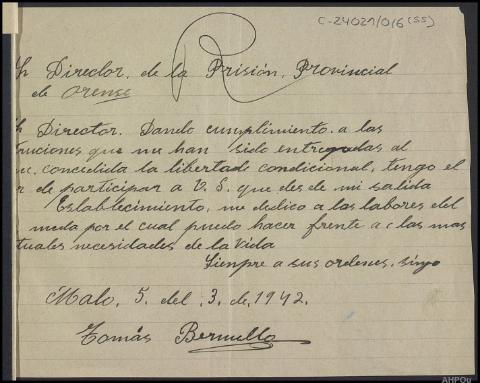 C-24021/016 (55)
R
Director. de la Prisión. Provincial
de Orense
Director. Dando cumplimiento. a las
truciones que me han sido entregadas al
me. concedida la libertade condicional, tengo el
r de participar a V. S. que des de mi salida
Establecimiento, me dedico a las labores del
medo por el cual puedo hacer frente a las mas
tuales necesidades de la vida
Sienpre a sus ordenes. suyo
Malo, 5. del .3. de, 1942.
Tomás Bermello
AHPOu